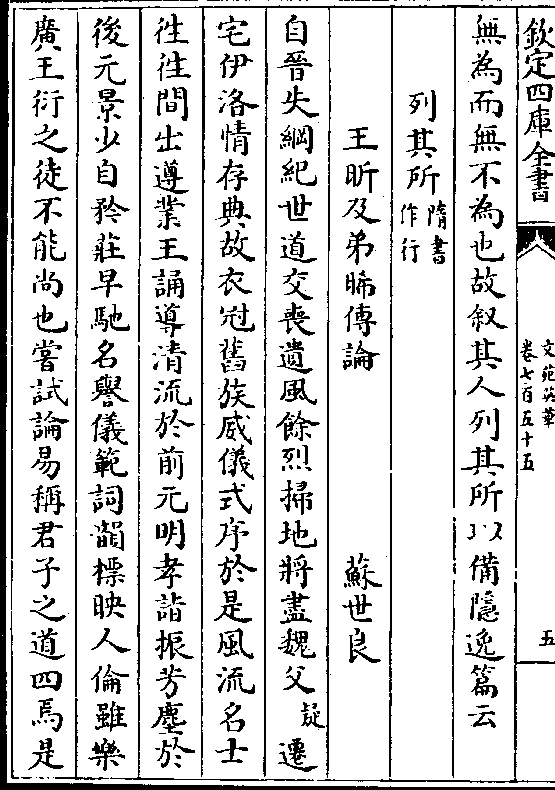 欽定四庫全書
文苑英華
卷七百五十五
五
無為而無不為也故叙其人列其所以備隱逸篇云
列其所隋書作行
王昕及弟晞傳論 蘇世良
自晉失綱紀世道交喪遺風餘烈掃地將盡魏父疑遷
宅伊洛情存典故衣冠舊族威儀式序於是風流名士
徃徃間出遵業王誦導清流於前元明孝詣振芳塵於
後元景少自矜莊早馳名譽儀範詞韻標映人倫雖樂
廣王衍之徒不能尚也嘗試論易稱君子之道四焉是